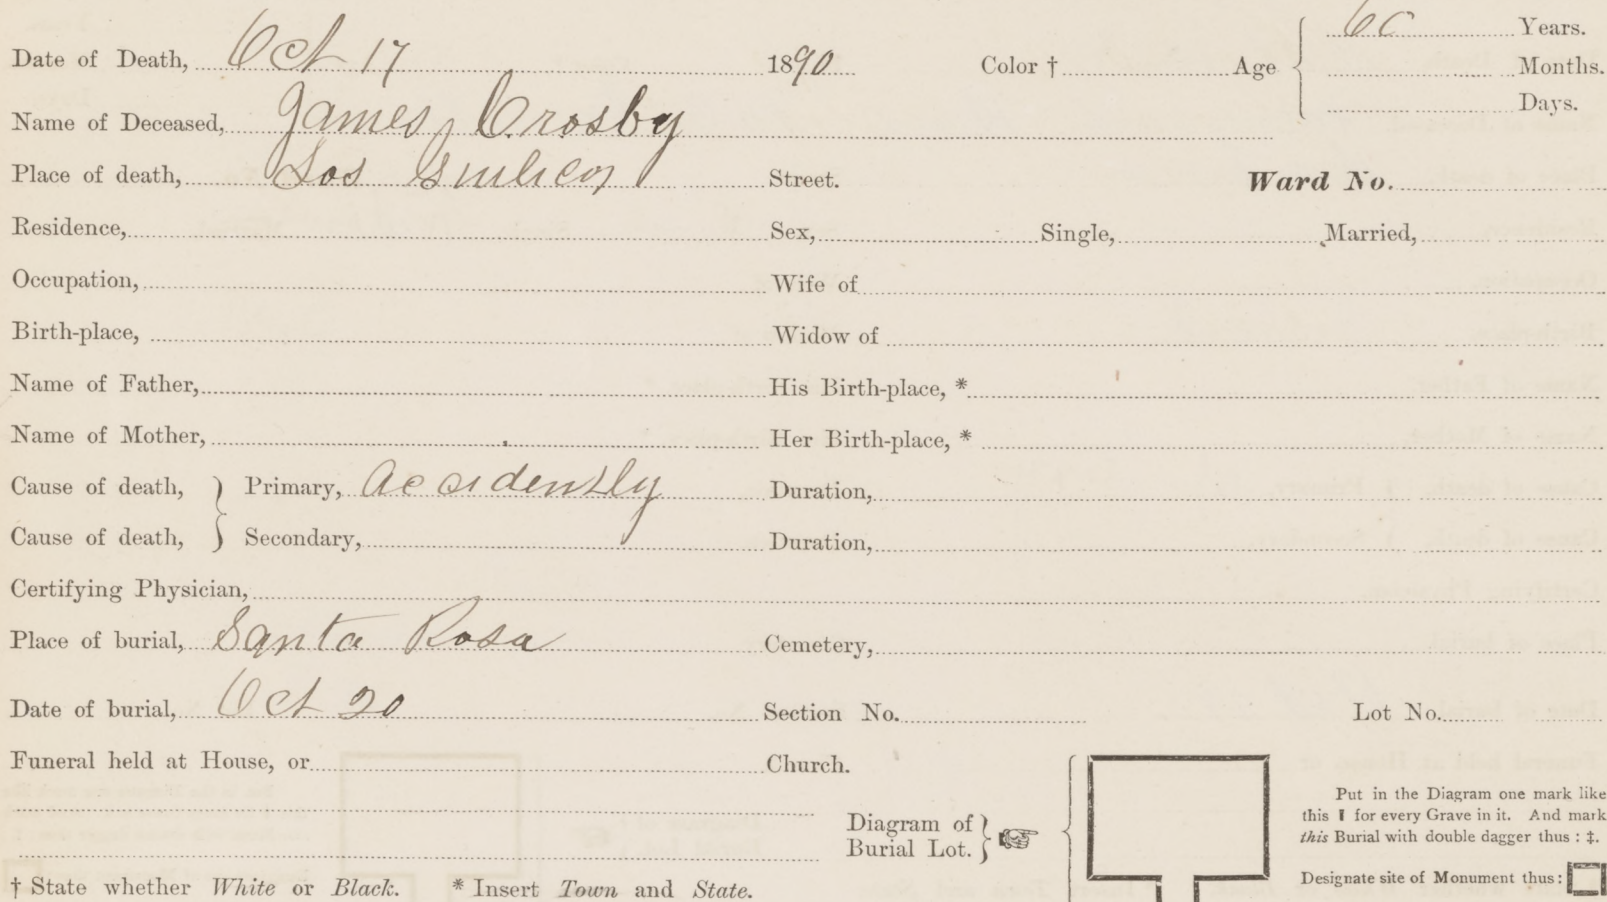 60 Years.
Date of Death, Oct 17 1890 Color † Age Months.
Days.
Name of Deceased, James Crosby
Place of death, Los Street. Ward No.
Residence, Sex, Single, Married,
Occupation, Wife of
Birth-place, Widow of
Name of Father, His Birth-place, *
Name of Mother, Her Birth-place, *
Cause of death, } Primary, Accidently Duration,
Cause of death, } Secondary, Duration,
Certifying Physician,
Place of burial, Santa Rosa Cemetery,
Date of burial, Oct 20 Section No. Lot No.
Funeral held at House, or Church.
Diagram of
Burial Lot. }
Put in the Diagram one mark like
this ▮ for every Grave in it. And mark
this Burial with double dagger thus : ‡.
Designate site of Monument thus :
† State whether White or Black. * Insert Town and State.